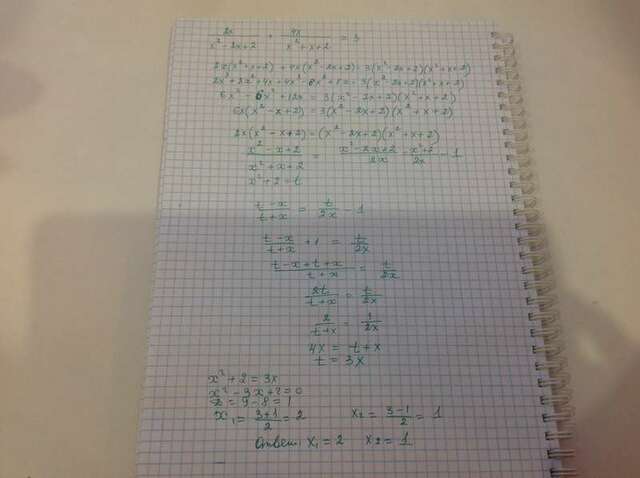 2x/(x² - 2x + 2) + 4x/(x² + x + 2) = 3
2x(x² + x + 2) + 4x(x² - 2x + 2) = 3(x² - 2x + 2)(x² + x + 2)
2x³ + 2x² + 4x + 4x³ - 8x² + 8x = 3(x² - 2x + 2)(x² + x + 2)
6x³ - 6x² + 12x = 3(x² - 2x + 2)(x² + x + 2)
6x(x² - x + 2) = 3(x² - 2x + 2)(x² + x + 2)
2x(x² - x + 2) = (x² - 2x + 2)(x² + x + 2)
(x² - x + 2)/(x² + x + 2) = (x² - 2x + 2)/2x = (x² + 2)/2x - 1
x² + 2 = t
(t - x)/(t + x) = t/2x - 1
(t - x)/(t + x) + 1 = t/2x
(t - x + t + x)/(t + x) = t/2x
2t/(t + x) = t/2x
2/(t + x) = 1/2x
4x = t + x
t = 3x
x² + 2 = 3x
x² - 3x + 2 = 0
= 9 - 8 = 1
x₁ = (3 + 1)/2 = 2 x₂ = (3 - 1)/2 = 1
Ответ: x₁ = 2 x₂ = 1